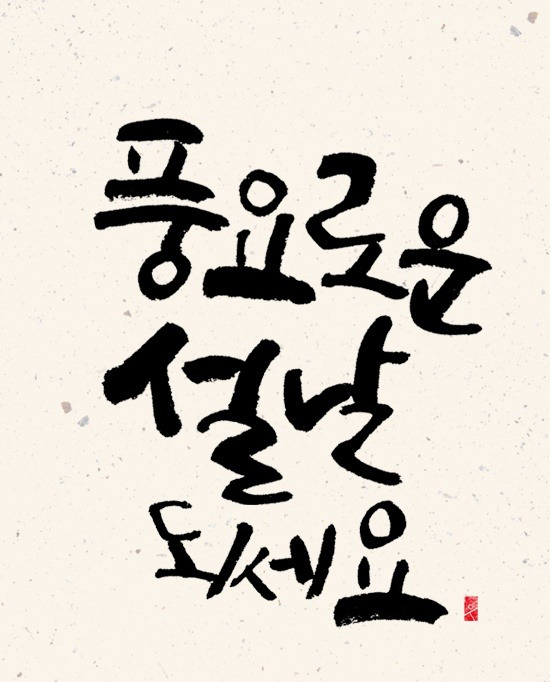 풍요로운
설날
되세요